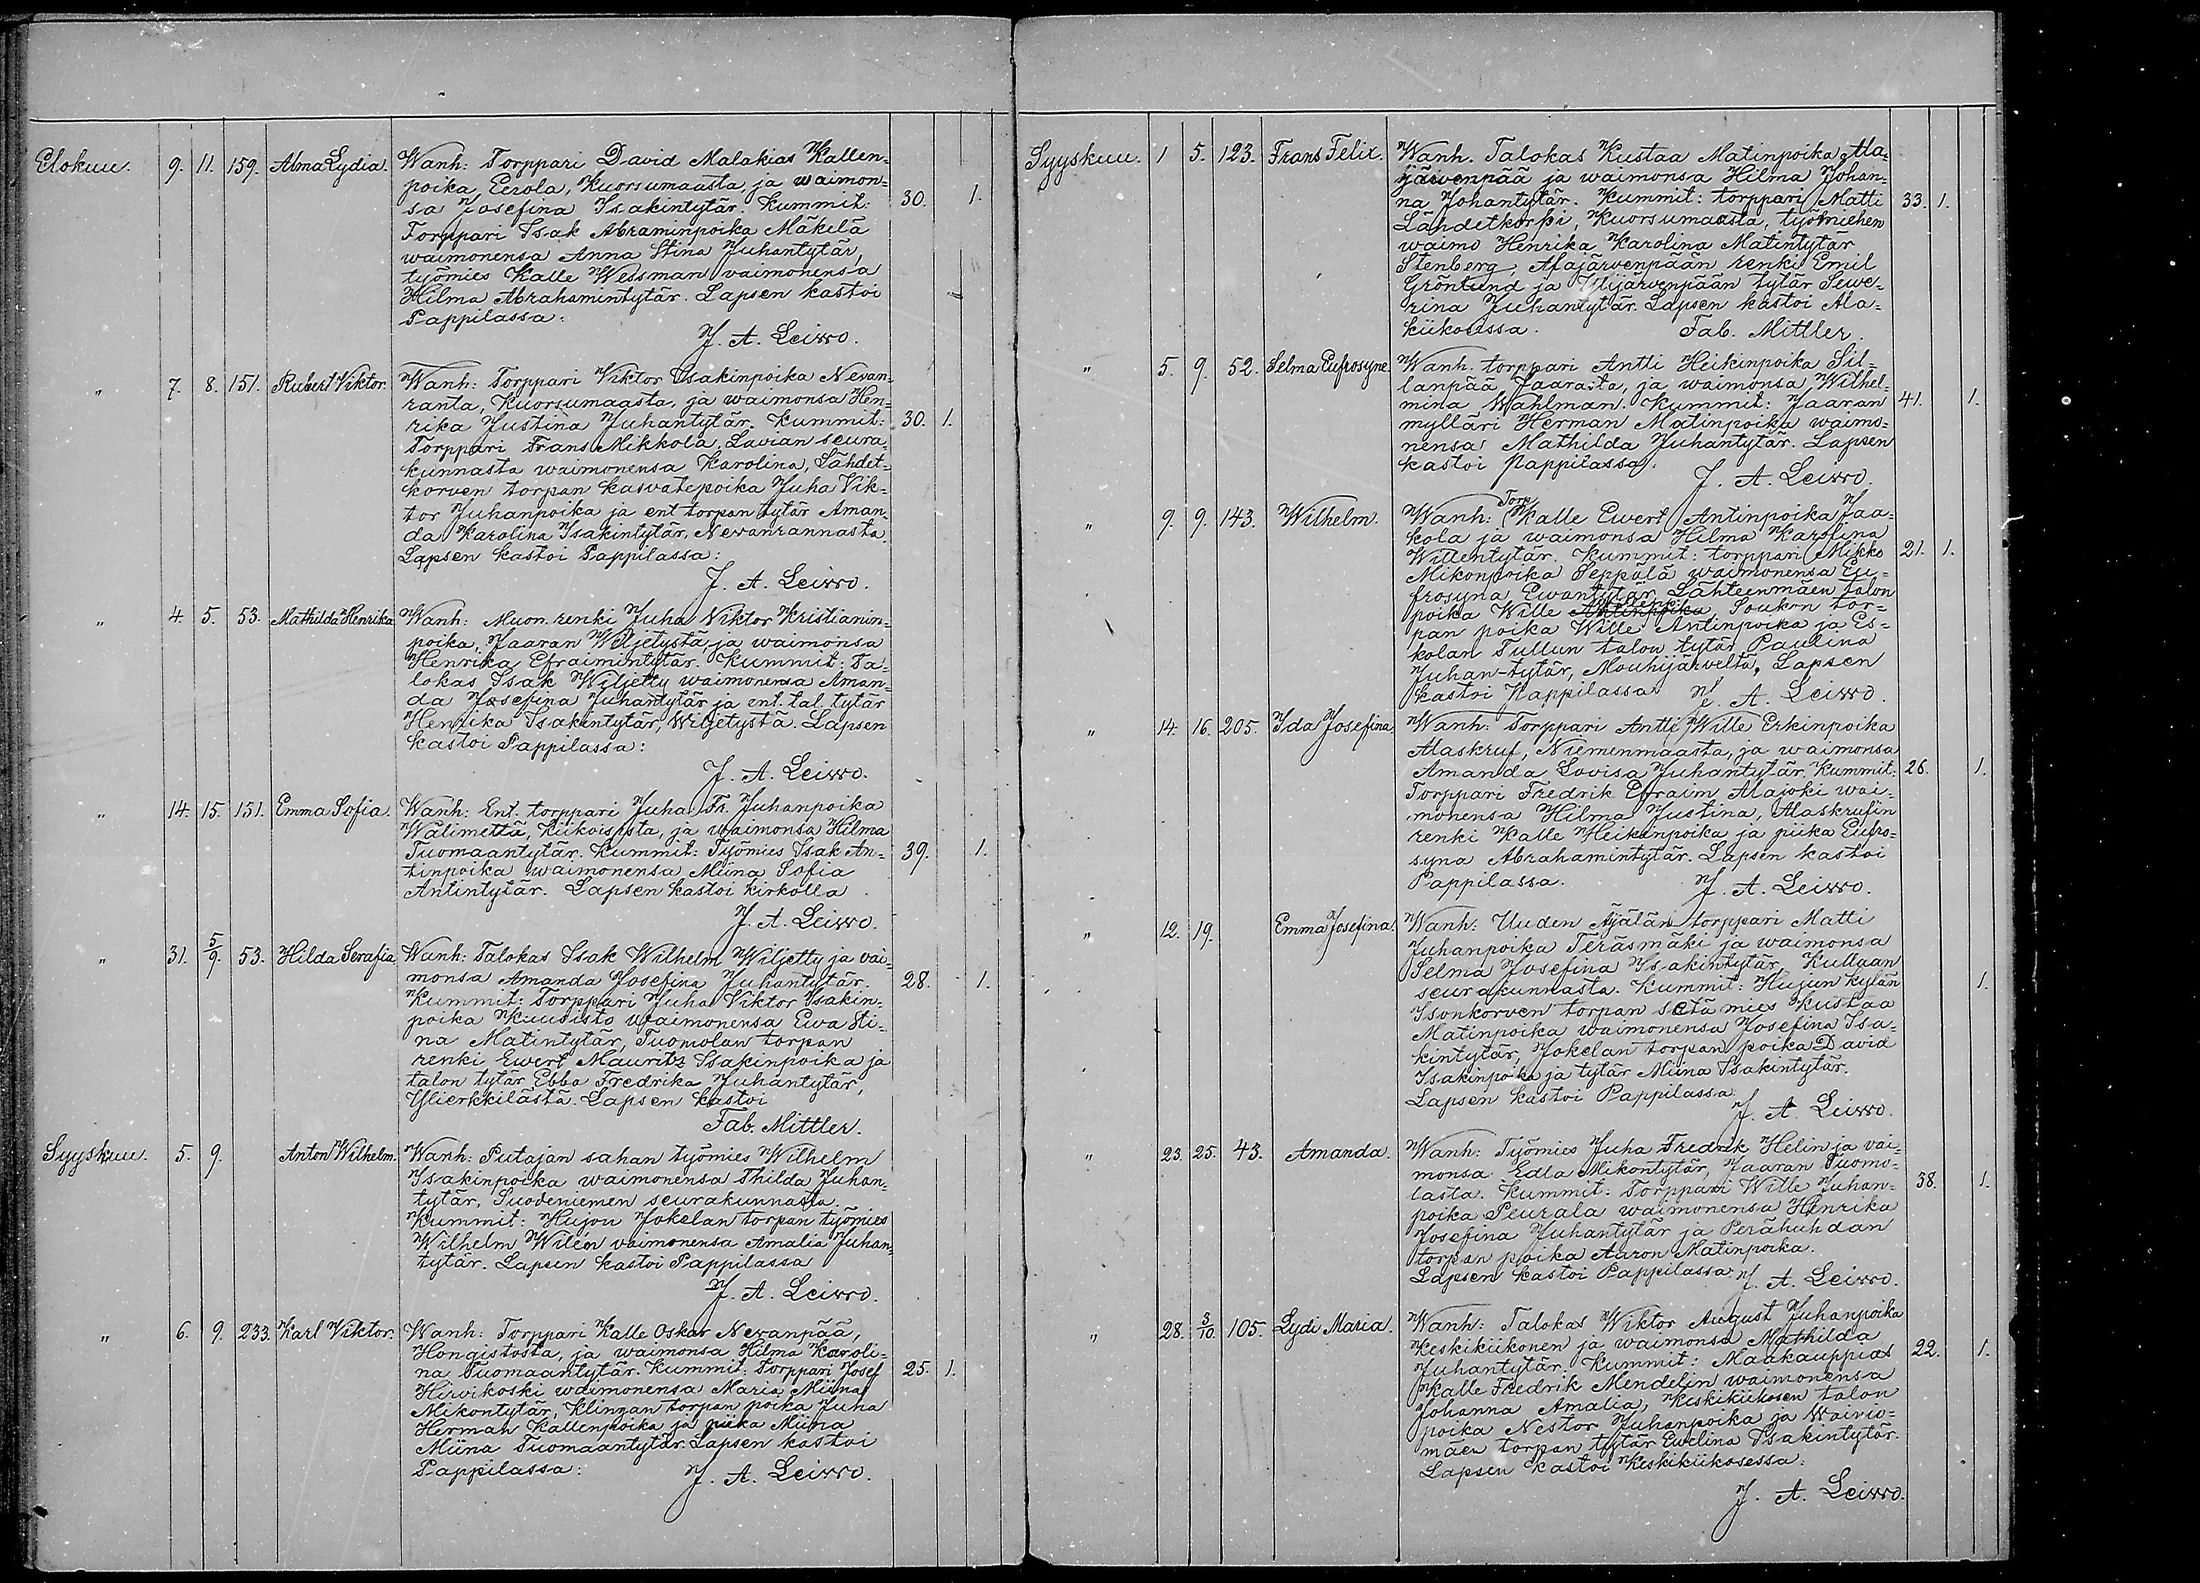 Elokuu. 9. 11. 159. Alma Lydia. Wanh: Torppari David Malakias Kallen-
poika, Eerola, Kuorsumaasta, ja waimon-
sa Josefina Isakintytär. Kummit: 30. 1.
Torppari Isak Abraminpoika Mäkelä
waimonensa Anna Stina Juhantytär,
työmies Kalle Wessman vaimonensa
Hilma Abrahamintytär. Lapsen kastoi
Pappilassa:
J. A. Leiwo.
" 7. 8. 151. Rubert Viktor. Wanh: Torppari Viktor Isakinpoika Nevan-
ranta, Kuorsumaasta, ja waimonsa Hen-
rika Justina Juhantytär. Kummit: 30. 1.
Torppari Frans Mikkola, Lavian seura
kunnasta waimonensa Karolina, Lähdet-
korven torpan kasvatepoika Juha Vik-
tor Juhanpoika ja ent torpan tytär Aman-
da Karolina Isakintytär, Nevanrannasta
Lapsen kastoi Pappilassa:
J. A. Leiwo.
" 4. 5. 53. Mathilda Henrika Wanh: Muon. renki Juha Viktor Kristianin-
poika, Jaaran Wiljetystä, ja waimonsa
Henrika Efraimintytär. Kummit: Ta-
lokas Isak Wiljetty waimonensa Aman-
da Josefina Juhantytär ja ent. tal. tytär
Henrika Isakintytär, Wiljetystä. Lapsen
kastoi Pappilassa:
J. A. Leiwo.
" 14. 15. 151. Emma Sofia. Wanh: Ent. torppari Juha Fr. Juhanpoika
Wälimettä, Kiikoisista, ja waimonsa Hilma
Tuomaantytär. Kummit: Työmies Isak An- 39. 1.
tinpoika waimonensa Miina Sofia
Antintytär. Lapsen kastoi kirkolla
J. A. Leiwo.
" 31. 5/9. 53. Hilda Serafia Wanh: Talokas Isak Wilhelm Wiljetty ja vai-
monsa Amanda Josefina Juhantytär. 28. 1.
Kummit: Torppari Juha Viktor Isakin-
poika Kuusisto waimonensa Ewa Sti-
na Matintytär, Tuomolan torpan
renki Ewert Mauritz Isakinpoika ja
talon tytär Ebba Fredrika Juhantytär,
Ylierkkilästä. Lapsen kastoi
Fab. Mittler.
Syyskuu. 5. 9. Anton Wilhelm. Wanh: Putajan sahan työmies Wilhelm
Isakinpoika waimonensa Thilda Juhan-
tytär, Suodeniemen seurakunnasta.
Kummit: Hujon Jokelan torpan työmies
Wilhelm Wilen vaimonensa Amalia Juhan-
tytär. Lapsen kastoi Pappilassa
J. A. Leiwo.
" 6. 9. 233. Karl Viktor. Wanh: Torppari Kalle Oskar Nevanpää,
Hongistosta, ja waimonsa Hilma Karoli-
na Tuomaantytär. Kummit: Torppari Josef 25. 1.
Hirvikoski waimonensa Maria Miina
Mikontytär, Klingan torpan poika Juha
Herman Kallenpoika ja piika Miina
Miina Tuomaantytär. Lapsen kastoi
Pappilassa:
J. A. Leiwo.
Syyskuu. 1 5. 123. Frans Felix. Wanh. Talokas Kustaa Matinpoika Ala-
järvenpää ja waimonsa Hilma Johan-
na Johantytär. Kummit: torppari Matti 33. 1.
Lähdetkorpi, Kuorsumaasta, työmiehen
waimo Henrika Karolina Matintytär
Stenberg, Alajärvenpään renki Emil
Grönlund ja Ylijärvenpään tytär Sewe-
rina Juhantytär. Lapsen kastoi Ala-
kiikosessa.
Fab. Mittler.
" 5. 9. 52. Selma Eufrosyne Wanh. torppari Antti Heikinpoika Sil-
lanpää Jaarasta, ja waimonsa, Wilhel-
mina Wahlman. Kummit: Jaaran 41. 1.
mylläri Herman Matinpoika waimo-
nensa Mathilda Juhantytär. Lapsen
kastoi Pappilassa.
J. A. Leiwo.
" 9. 9. 143. Wilhelm. Wanh: Torp Kalle Ewert Antinpoika Jaa-
kola ja waimonsa Hilma Karolina
Willentytär. Kummit: torppari Mikko 21. 1.
Mikonpoika Seppälä waimonensa Eu-
frosyna Ewantytär, Lähteenmäen talon
poika Wille Antinpoika, Soukon tor-
pan poika Wille Antinpoika ja Es-
kolan Tullun talon tytär Paulina
Juhan-tytär, Mouhijärveltä. Lapsen
kastoi Pappilassa J. A. Leiwo.
" 14. 16. 205. Ida Josefina. Wanh: Torppari Antti Wille Erkinpoika
Alaskruf, Niemenmaasta, ja waimonsa
Amanda Lovisa Juhantytär. Kummit: 26. 1.
Torppari Fredrik Efraim Alajoki wai-
monensa Hilma Justina, Alaskrufin
renki Kalle Heikinpoika ja piika Eufro-
syna Abrahamintytär. Lapsen kastoi
Pappilassa.
J. A. Leiwo.
" 12. 19. Emma Josefina. Wanh: Uuden Äijälän torppari Matti
Juhanpoika Teräsmäki ja waimonsa
Selma Josefina Isakintytär, Kullaan
seurakunnasta. Kummit: Hujun kylän 1.
Isonkorven torpan setä mies Kustaa
Matinpoika waimonensa Josefina Isa-
kintytär, Jokelan torpan poika David
Isakinpoika ja tytär Miina Isakintytär.
Lapsen kastoi Pappilassa
J. A. Leiwo.
" 23. 25. 43. Amanda. Wanh: Työmies Juha Fredrik Helin ja vai-
monsa Edla Mikontytär, Jaaran Tuomo-
lasta. Kummit: Torppari Wille Juhan- 38. 1.
poika Peurala waimonensa Henrika
Josefina Juhantytär ja Perähuhdan
torpan poika Aaron Matinpoika.
Lapsen kastoi Pappilassa. J. A. Leiwo.
" 28. 3/10. 105. Lydi Maria. Wanh: Talokas Wiktor August Juhanpoika
Keskikiikonen ja waimonsa Mathilda
Juhantytär. Kummit: Maakauppias 22. 1.
Kalle Fredrik Mendelin waimonensa
Johanna Amalia, Keskikiikosen talon
poika Nestor Juhanpoika ja Waivio-
mäen torpan tytär Ewelina Isakintytär.
Lapsen kastoi Keskikiikosessa.
J. A. Leiwo.